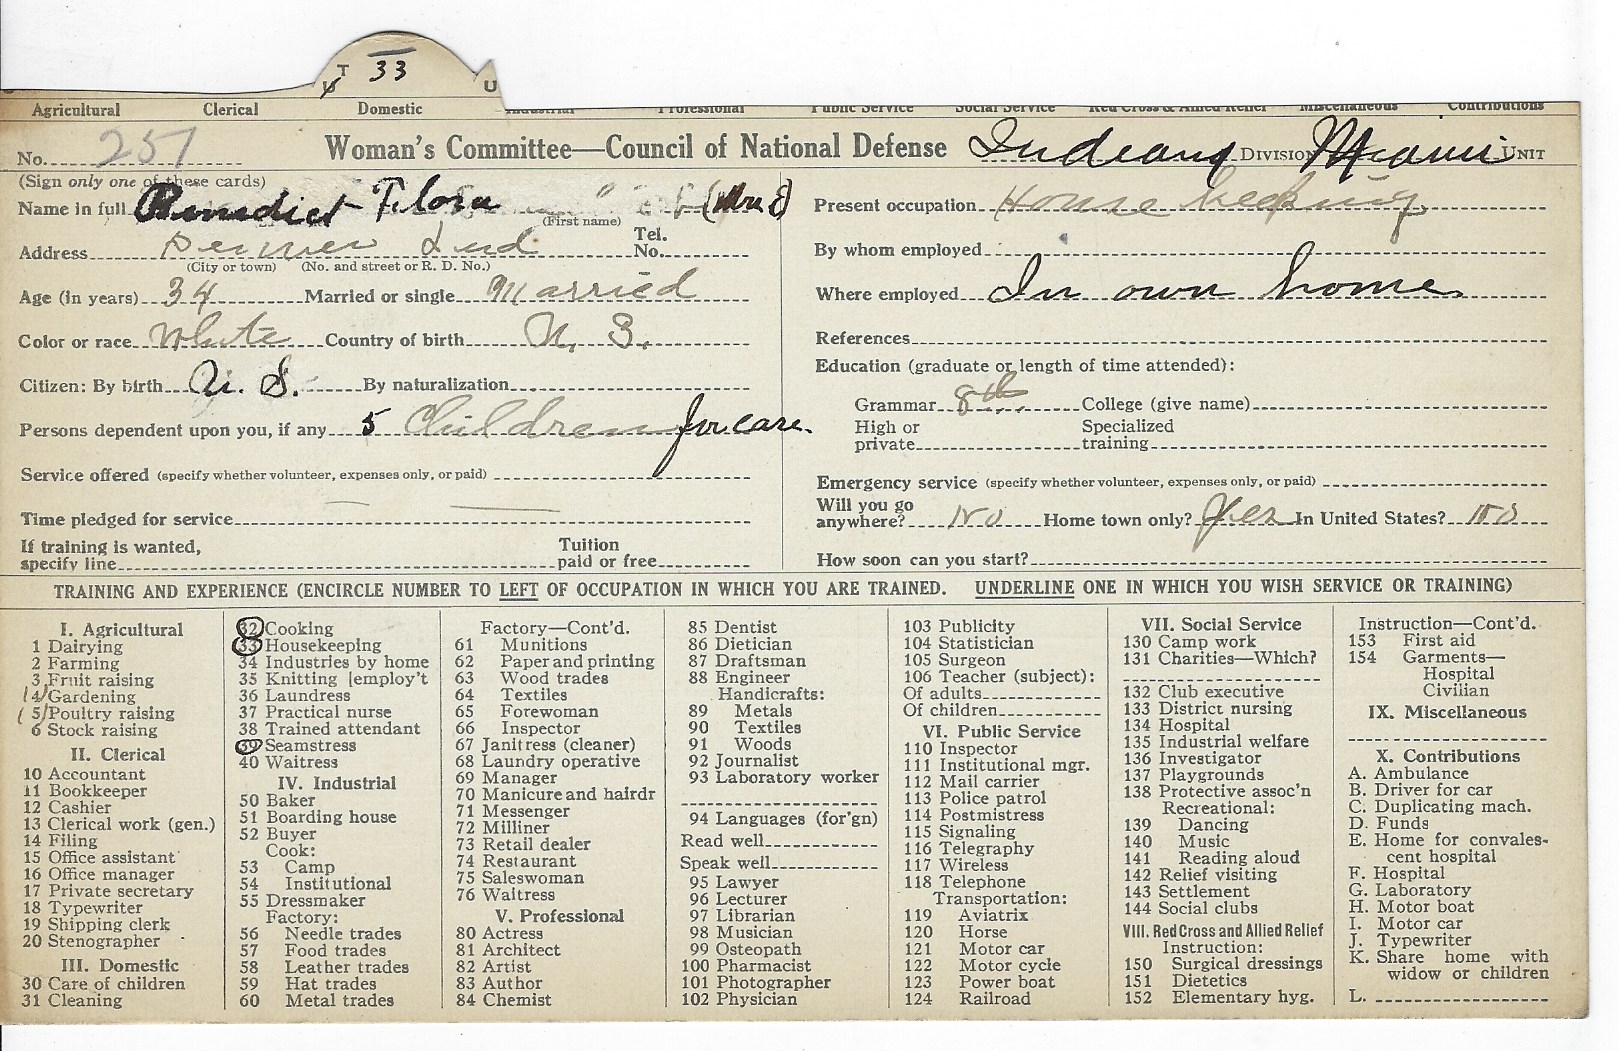 T 33
U
Agricultural Clerical Domestic Industrial Professional Public Service Social Service Red Cross & Allied Relief Miscellaneous Contributions
No. 257 Woman's Committee—Council of National Defense Indiana DIVISION Miami UNIT
(Sign only one of these cards)
Name in full Benedict Flora (Mrs E)
(First name)
Address Denver Ind Tel. No.
(City or town) (No. and street or R. D. No.)
Age (in years) 34 Married or single Married
Color or race White Country of birth U. S.
Citizen: By birth U. S. By naturalization
Persons dependent upon you, if any 5 Children for care.
Service offered (specify whether volunteer, expenses only, or paid)
Time pledged for service
If training is wanted, specify line Tuition paid or free
Present occupation House keeping
By whom employed
Where employed In own home
References
Education (graduate or length of time attended):
Grammar 8th College (give name)
High or private Specialized training
Emergency service (specify whether volunteer, expenses only, or paid)
Will you go anywhere? No Home town only? Yes In United States? No
How soon can you start?
TRAINING AND EXPERIENCE (ENCIRCLE NUMBER TO LEFT OF OCCUPATION IN WHICH YOU ARE TRAINED. UNDERLINE ONE IN WHICH YOU WISH SERVICE OR TRAINING)
I. Agricultural
1 Dairying
2 Farming
3 Fruit raising
4 Gardening
5 Poultry raising
6 Stock raising
II. Clerical
10 Accountant
11 Bookkeeper
12 Cashier
13 Clerical work (gen.)
14 Filing
15 Office assistant
16 Office manager
17 Private secretary
18 Typewriter
19 Shipping clerk
20 Stenographer
III. Domestic
30 Care of children
31 Cleaning
32 Cooking
33 Housekeeping
34 Industries by home
35 Knitting [employ't
36 Laundress
37 Practical nurse
38 Trained attendant
39 Seamstress
40 Waitress
IV. Industrial
50 Baker
51 Boarding house
52 Buyer
Cook:
53 Camp
54 Institutional
55 Dressmaker
Factory:
56 Needle trades
57 Food trades
58 Leather trades
59 Hat trades
60 Metal trades
Factory—Cont'd.
61 Munitions
62 Paper and printing
63 Wood trades
64 Textiles
65 Forewoman
66 Inspector
67 Janitress (cleaner)
68 Laundry operative
69 Manager
70 Manicure and hairdr
71 Messenger
72 Milliner
73 Retail dealer
74 Restaurant
75 Saleswoman
76 Waitress
V. Professional
80 Actress
81 Architect
82 Artist
83 Author
84 Chemist
85 Dentist
86 Dietician
87 Draftsman
88 Engineer
Handicrafts:
89 Metals
90 Textiles
91 Woods
92 Journalist
93 Laboratory worker
94 Languages (for'gn)
Read well
Speak well
95 Lawyer
96 Lecturer
97 Librarian
98 Musician
99 Osteopath
100 Pharmacist
101 Photographer
102 Physician
103 Publicity
104 Statistician
105 Surgeon
106 Teacher (subject):
Of adults
Of children
VI. Public Service
110 Inspector
111 Institutional mgr.
112 Mail carrier
113 Police patrol
114 Postmistress
115 Signaling
116 Telegraphy
117 Wireless
118 Telephone
Transportation:
119 Aviatrix
120 Horse
121 Motor car
122 Motor cycle
123 Power boat
124 Railroad
VII. Social Service
130 Camp work
131 Charities—Which?
132 Club executive
133 District nursing
134 Hospital
135 Industrial welfare
136 Investigator
137 Playgrounds
138 Protective assoc'n
Recreational:
139 Dancing
140 Music
141 Reading aloud
142 Relief visiting
143 Settlement
144 Social clubs
VIII. Red Cross and Allied Relief
Instruction:
150 Surgical dressings
151 Dietetics
152 Elementary hyg.
Instruction—Cont'd.
153 First aid
154 Garments—
Hospital
Civilian
IX. Miscellaneous
X. Contributions
A. Ambulance
B. Driver for car
C. Duplicating mach.
D. Funds
E. Home for convales-
cent hospital
F. Hospital
G. Laboratory
H. Motor boat
I. Motor car
J. Typewriter
K. Share home with
widow or children
L.